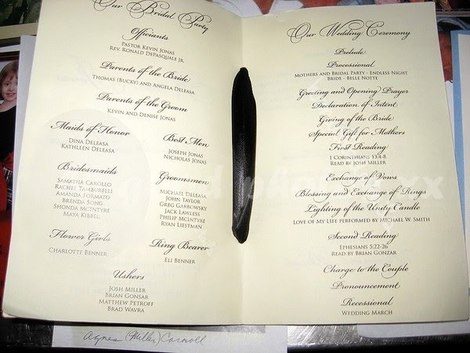 Our Bridal Party
Officiants
Pastor Kevin Jonas
Rev. Ronald DePasquale Jr.
Parents of the Bride
Thomas (Bucky) and Angela Deleasa
Parents of the Groom
Kevin and Denise Jonas
Maids of Honor
Dina Deleasa
Kathleen Deleasa
Best Men
Joseph Jonas
Nicholas Jonas
Bridesmaids
Samantha
Rachel
Amanda
Brenda Song
Shonda McIntyre
Maya Kibbel
Groomsmen
Michael Deleasa
John Taylor
Greg Garbowsky
Jack Lawless
Philip McIntyre
Ryan Liestman
Flower Girls
Charlotte Benner
Ring Bearer
Eli Benner
Ushers
Josh Miller
Brian Gonsar
Matthew Petroff
Brad Wavra
Our Wedding Ceremony
Prelude
Processional
Mothers and Bridal Party - Endless Night
Bride - Belle Notte
Greeting and Opening Prayer
Declaration of Intent
Giving of the Bride
Special Gift for Mothers
First Reading
I Corinthians 13:4-8
Read by Josh Miller
Exchange of Vows
Blessing and Exchange of Rings
Lighting of the Unity Candle
Love of My Life performed by Michael W. Smith
Second Reading
Ephesians 5:22-26
Read by Brian Gonzar
Charge to the Couple
Pronouncement
Recessional
Wedding March
Agnes (Miller) Carroll